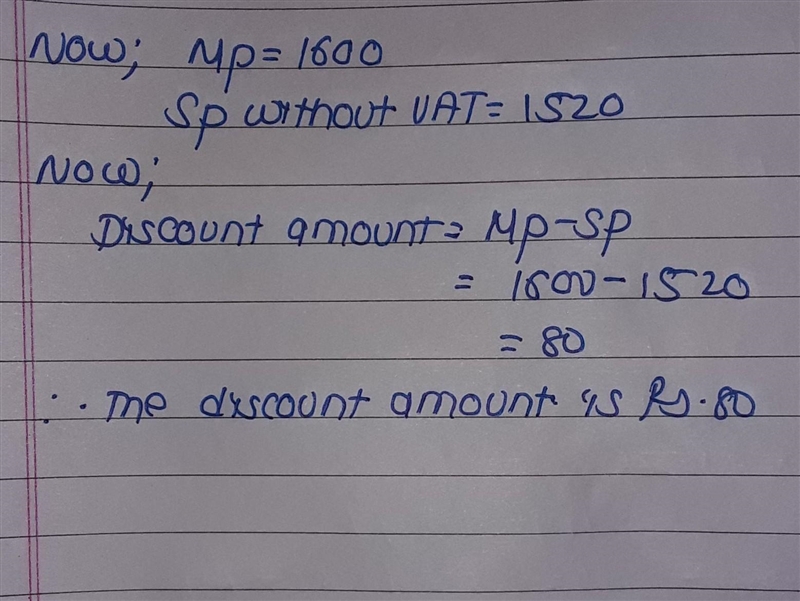 Now; Mp = 1600
Sp without VAT = 1520
Now;
Discount amount = Mp - Sp
= 1600 - 1520
= 80
∴ The discount amount is Rs. 80